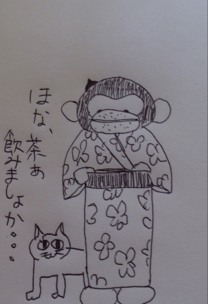 ほな、茶ぁ
飲みましょか・・・